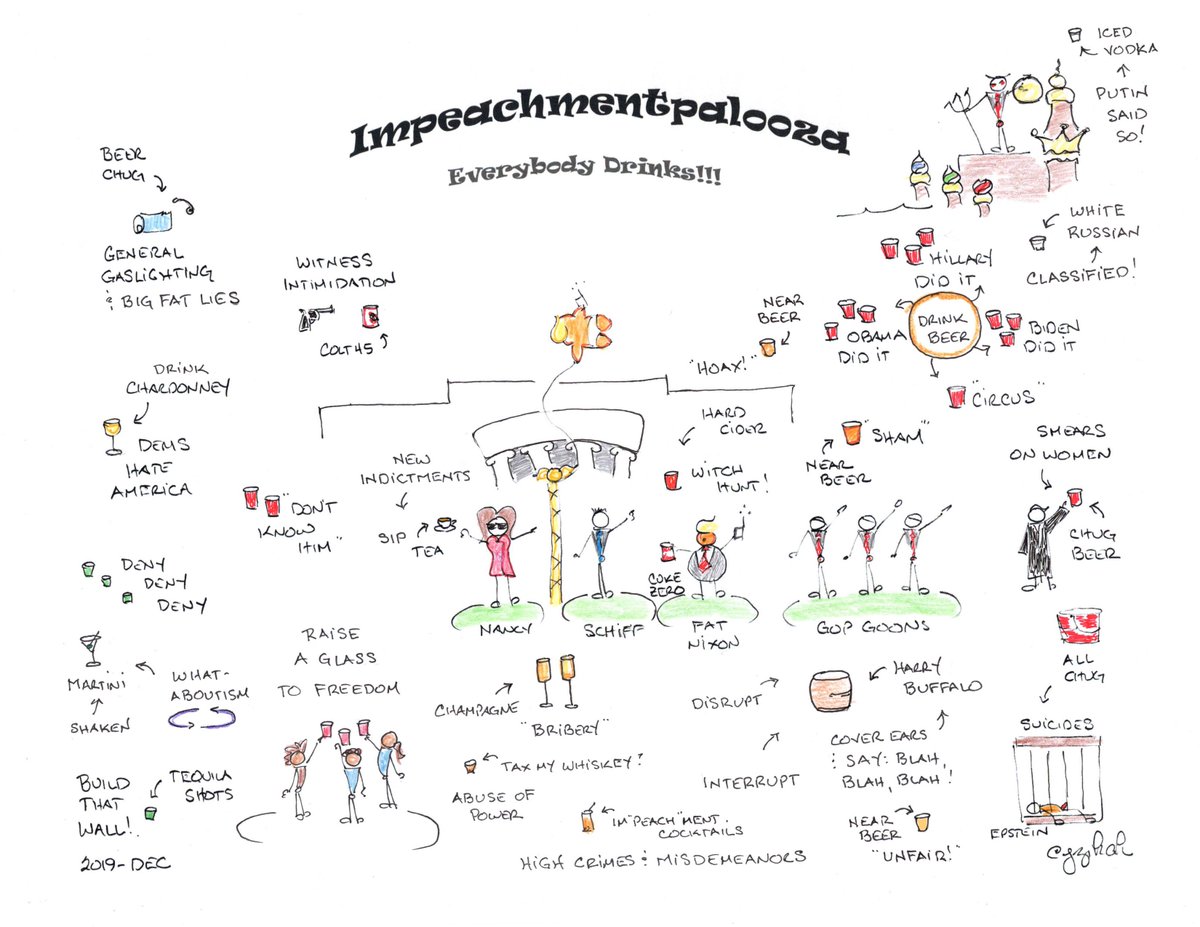 Impeachmentpalooza
Everybody Drinks!!!
ICED
VODKA
PUTIN
SAID
SO!
BEER
CHUG
GENERAL
GASLIGHTING
& BIG FAT LIES
WITNESS
INTIMIDATION
COLT 45
WHITE
RUSSIAN
CLASSIFIED!
HILLARY
DID IT
DRINK
BEER
OBAMA
DID IT
BIDEN
DID IT
"CIRCUS"
NEAR
BEER
"HOAX!"
DRINK
CHARDONNEY
DEMS
HATE
AMERICA
HARD
CIDER
WITCH
HUNT!
"SHAM"
NEAR
BEER
SMEARS
ON WOMEN
CHUG
BEER
NEW
INDICTMENTS
SIP
TEA
"DON'T
KNOW
HIM"
COKE
ZERO
NANCY
SCHIFF
FAT
NIXON
GOP GOONS
DENY
DENY
DENY
MARTINI
SHAKEN
WHAT-
ABOUTISM
RAISE
A GLASS
TO FREEDOM
CHAMPAGNE
"BRIBERY"
DISRUPT
HARRY
BUFFALO
ALL
CHUG
SUICIDES
EPSTEIN
TAX MY WHISKEY?
ABUSE OF
POWER
INTERRUPT
COVER EARS
& SAY: BLAH,
BLAH, BLAH!
BUILD
THAT
WALL!
TEQUILA
SHOTS
IM"PEACH"MENT
COCKTAILS
HIGH CRIMES & MISDEMEANORS
NEAR
BEER
"UNFAIR!"
2019-DEC